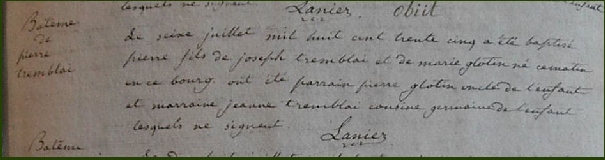 lesquels ne signent. Lanier. Obiit
Batême
de
pierre
tremblai
Le seize juillet mil huit cent trente cinq a été baptisé
pierre fils de joseph tremblai et de marie glotin né ce matin
en ce bourg. ont été parrain pierre glotin oncle de l'enfant
et marraine jeanne tremblai cousine germaine de l'enfant
lesquels ne signent. Lanier
Batême